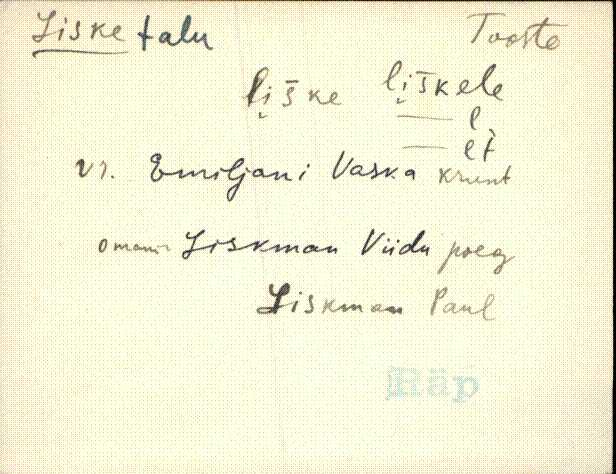 Liske talu Tooste
ļiške ļiškele
— l
— lt
vr. Emiljani Vaska krunt
omanik Liskman Viidu poeg
Liskman Paul
Räp